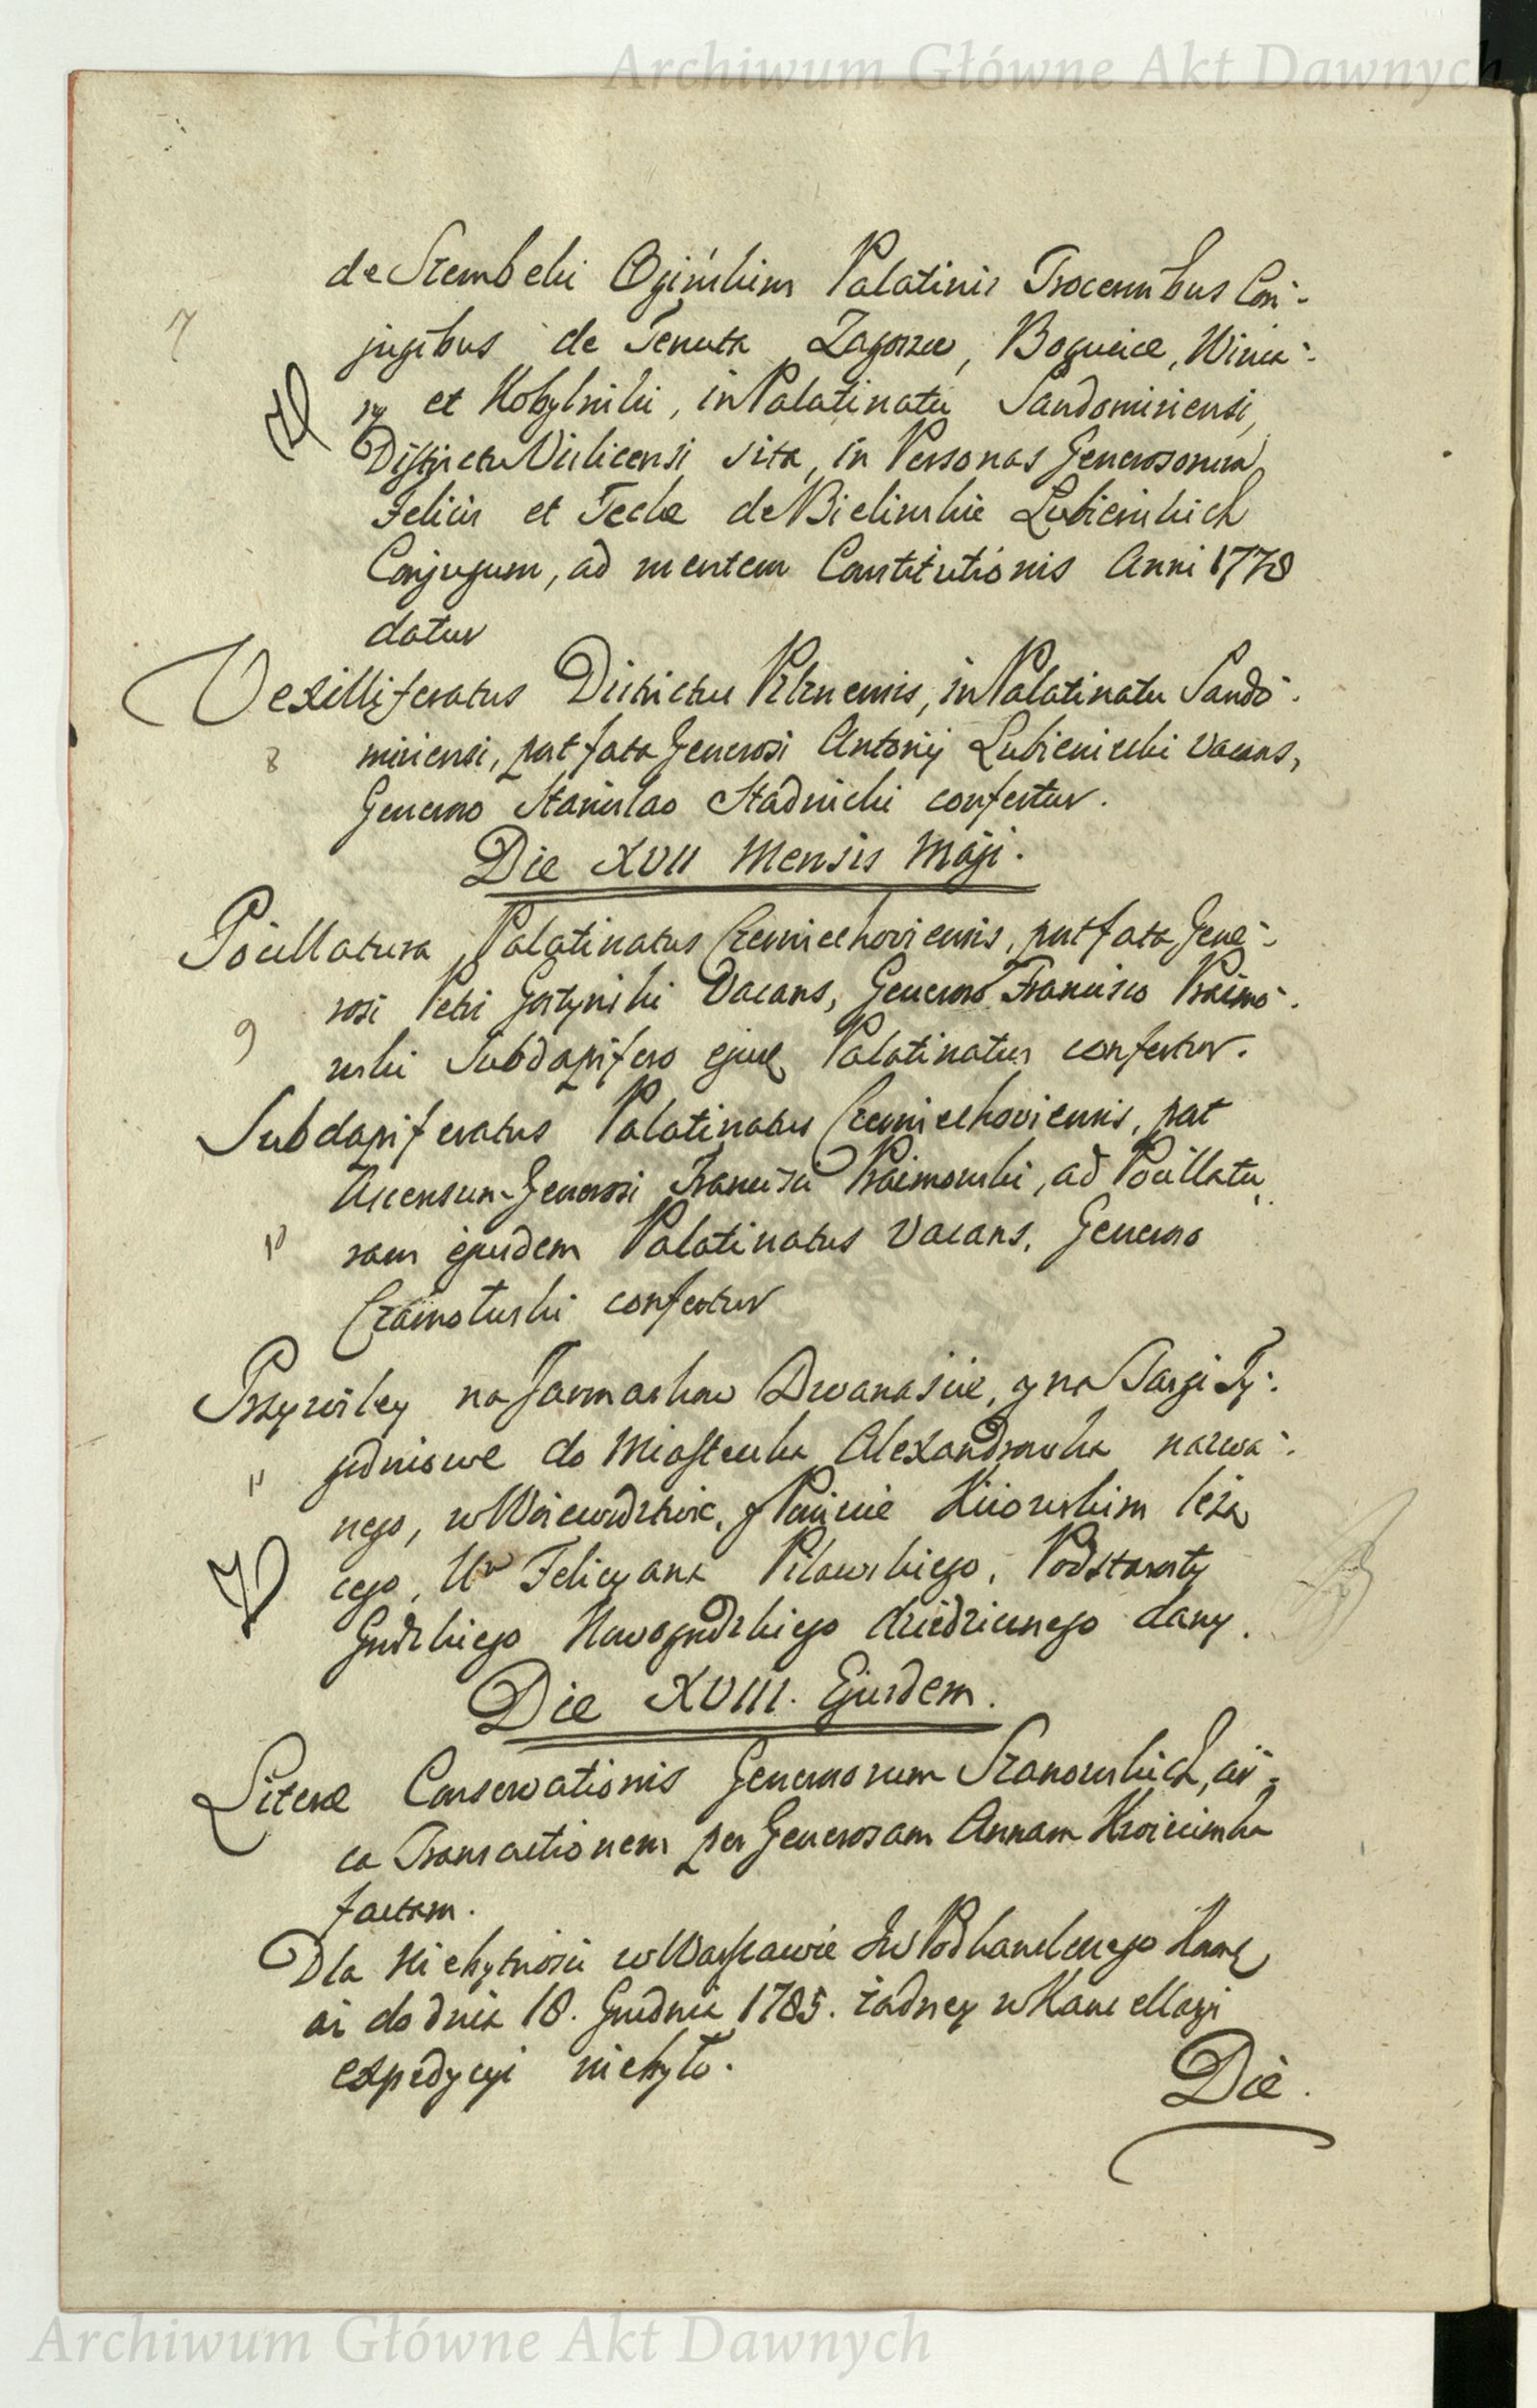 Archiwum Główne Akt Dawnych
de Szembeki Ogińskim Palatinis Trocensibus Con-
7 jugibus de Tenuta Zagorze, Bogucice, Winia-
ry et Kobylniki, in Palatinatu Sandomiriensi,
Districtu Visliciensi sita, in Personas Generosorum
Felicis et Teclæ de Bielinskie Lubienskich
Conjugum, ad mentem Constitutionis Anni 1778
datur
Vexilliferatus Districtus Pilznensis, in Palatinatu Sando-
8 miriensi, post fata Generosi Antonij Lubieniecki vacans,
Generoso Stanislao Stadnicki confertur.
Die XVII Mensis Maji.
Pocillatura Palatinatus Czerniechoviensis, post fata Gene-
rosi Petri Gostynski Vacans, Generoso Francisco
9 Subdapifero ejusd Palatinatus confertur.
Subdapiferatus Palatinatus Czerniechoviensis, post
Ascensum Generosi Francisci ad Pocillatu
10 ram ejusdem Palatinatus Vacans, Generoso
confertur
Przywiley na Jarmarkow Dwanascie, y na Targi Ty-
11 godniowe do Miasteczka Alexandrowka nazwa-
nego, w Woiewodztwie, y Powiecie Kiiowskim leżą
cego, Ur Felicyana Pilawskiego, Podstarosty
Grodzkiego Nowogrodzkiego dziedzicznego dany.
Die XVIII. Ejusdem.
Literæ Conservationis Generosorum Szanowskich, cir-
ca Transactionem per Generosam Annam
factam.
Dla Niebytnosci w Warszawie JW Podkanclerzego Kore
aż do dnia 18. Grudnia 1785. żadney w Kancellaryi
expedycyi niebyło.
Die.
Archiwum Główne Akt Dawnych